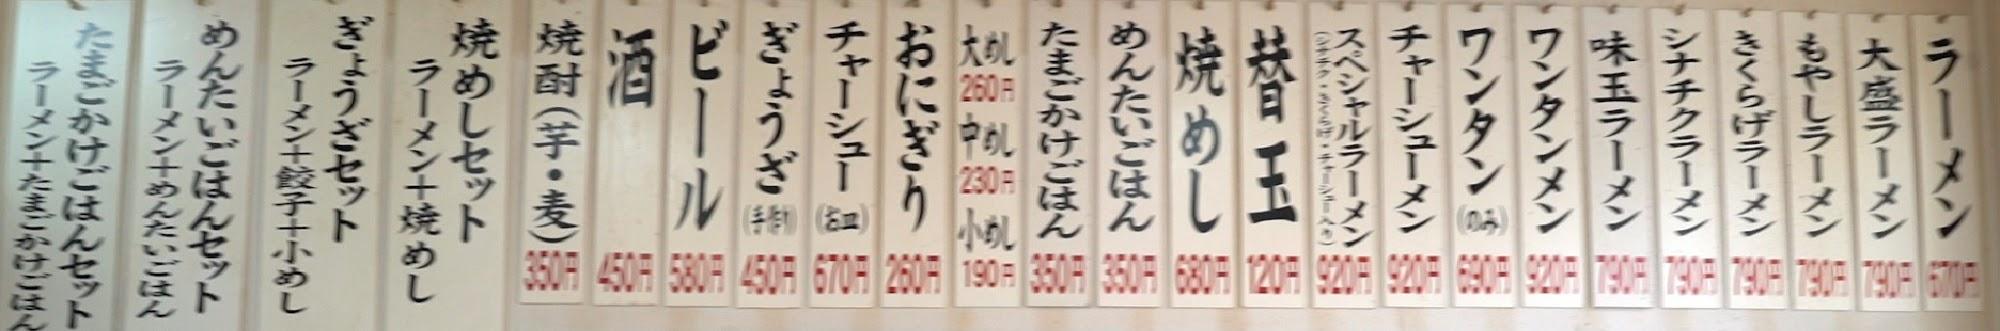 ラーメン
670円
大盛ラーメン
790円
もやしラーメン
790円
きくらげラーメン
790円
シナチクラーメン
790円
味玉ラーメン
790円
ワンタンメン
920円
ワンタン(のみ)
690円
チャーシューメン
920円
スペシャルラーメン
(シナチク・きくらげ・チャーシュー入り)
920円
替玉
120円
焼めし
680円
めんたいごはん
350円
たまごかけごはん
350円
大めし
260円
中めし
230円
小めし
190円
おにぎり
260円
チャーシュー(お皿)
670円
ぎょうざ(手作り)
450円
ビール
580円
酒
450円
焼酎(芋・麦)
350円
焼めしセット
ラーメン+焼めし
ぎょうざセット
ラーメン+餃子+小めし
めんたいごはんセット
ラーメン+めんたいごはん
たまごかけごはんセット
ラーメン+たまごかけごはん